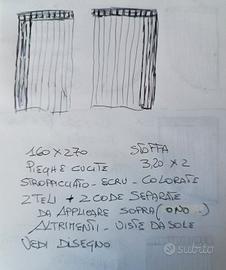 160 x 270 STOFFA
PIEGHE CUCITE 3,20 x 2
STROPICCIATO - ECRU - COLORATE
2 TELI + 2 CODE SEPARATE
DA APPLICARE SOPRA (O NO...)
ALTRIMENTI - VISTE DA SOLE
VEDI DISEGNO
subito